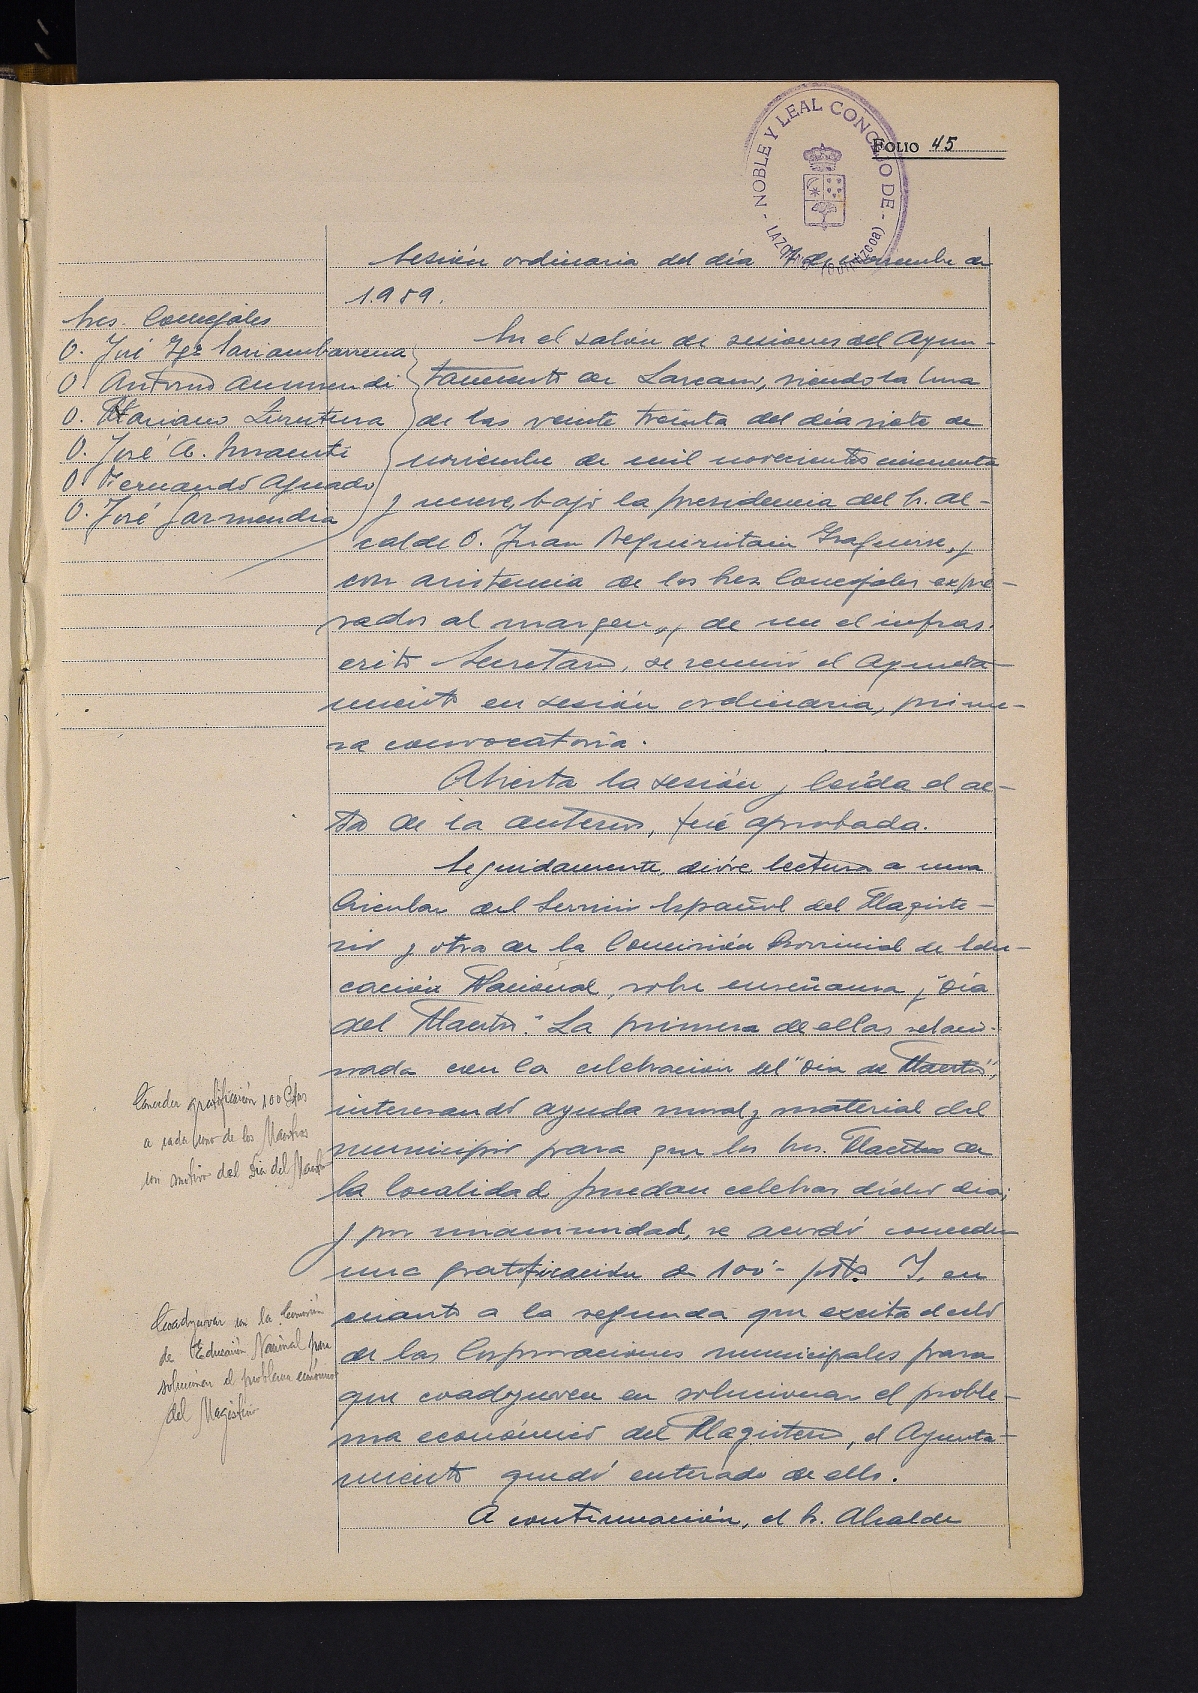 FOLIO 45
NOBLE Y LEAL CONCEJO DE
(GUIPUZCOA)
Sesión ordinaria del día 7 de noviembre de
1.959.
Sres. Concejales
D. José
D. Antonio
D. Mariano
D. José A.
D. Fernando Aguado
D. José Garmendia
En el salón de sesiones del Ayun-
tamiento de Lazcano, siendo la hora
de las veinte treinta del día siete de
noviembre de mil novecientos cincuenta
y nueve, bajo la presidencia del Sr. Al-
calde D. Juan y
con asistencia de los Sres. Concejales expre-
sados al margen, y de mi el infras-
crito Secretario, se reunió el Ayunta-
miento en sesión ordinaria, prime-
ra convocatoria.
Abierta la sesión y leída el ac-
ta de la anterior, fué aprobada.
Seguidamente, dióse lectura a una
Circular del Servicio Español del Magiste-
rio y otra de la Comisión Provincial de Edu-
cación Nacional, sobre enseñanza y "Día
del Maestro". La primera de ellas relacio-
nada con la celebración del "Día de Maestro",
interesando ayuda moral y material del
municipio para que los Sres. Maestros de
la localidad puedan celebrar dicho día;
y por unanimidad, se acordó conceder
una gratificación de 100'- pts. Y, en
cuanto a la segunda que excita el celo
de las Corporaciones municipales para
que coadyuven en solucionar el proble-
ma económico del Magisterio, el Ayunta-
miento quedó enterado de ello.
A continuación, el Sr. Alcalde
Conceder gratificación 100 Ptas
a cada uno de los Maestros
con motivo del Día del Maestro
Coadyuvar con la Comisión
de Educación Nacional para
solucionar el problema económico
del Magisterio